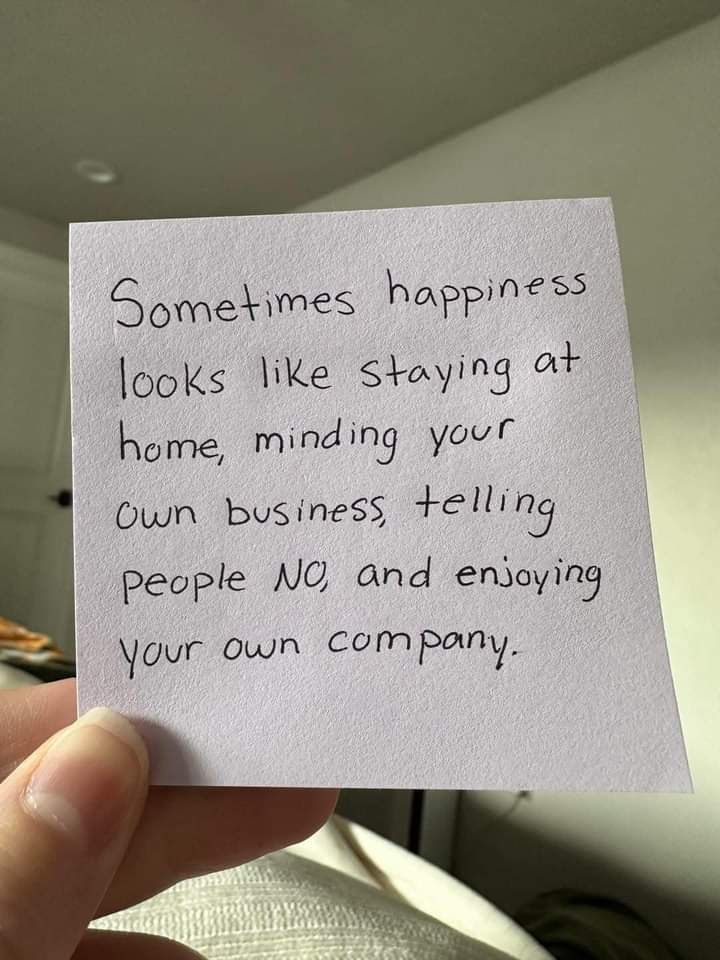 Sometimes happiness
looks like staying at
home, minding your
own business, telling
people NO, and enjoying
your own company.